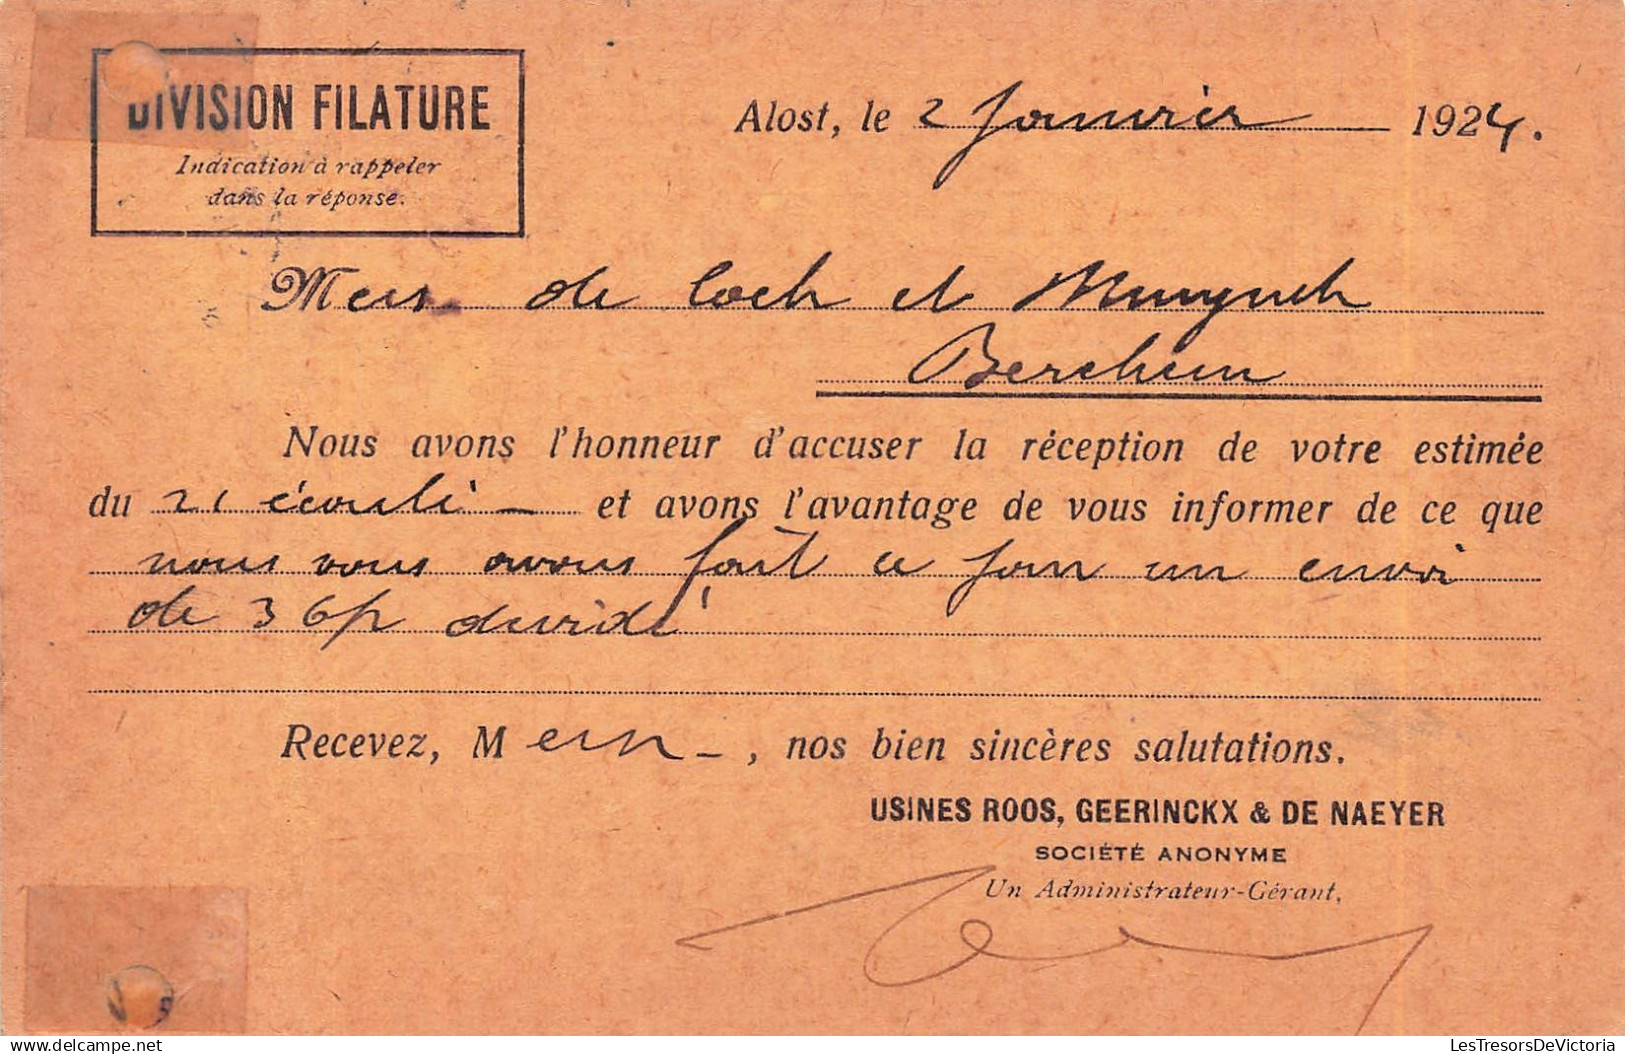 DIVISION FILATURE
Indication à rappeler
dans la réponse.
Alost, le 2 Janvier 1924.
Mers de Coch et Munynck
Berchem
Nous avons l'honneur d'accuser la réception de votre estimée
du 21 écoulé et avons l'avantage de vous informer de ce que
nous vous avons fait ce jour un envoi
de 3 6/2 dévidé
Recevez, Mers, nos bien sincères salutations.
USINES ROOS, GEERINCKX & DE NAEYER
SOCIÉTÉ ANONYME
Un Administrateur-Gérant,
delcampe.net
LesTresorsDeVictoria